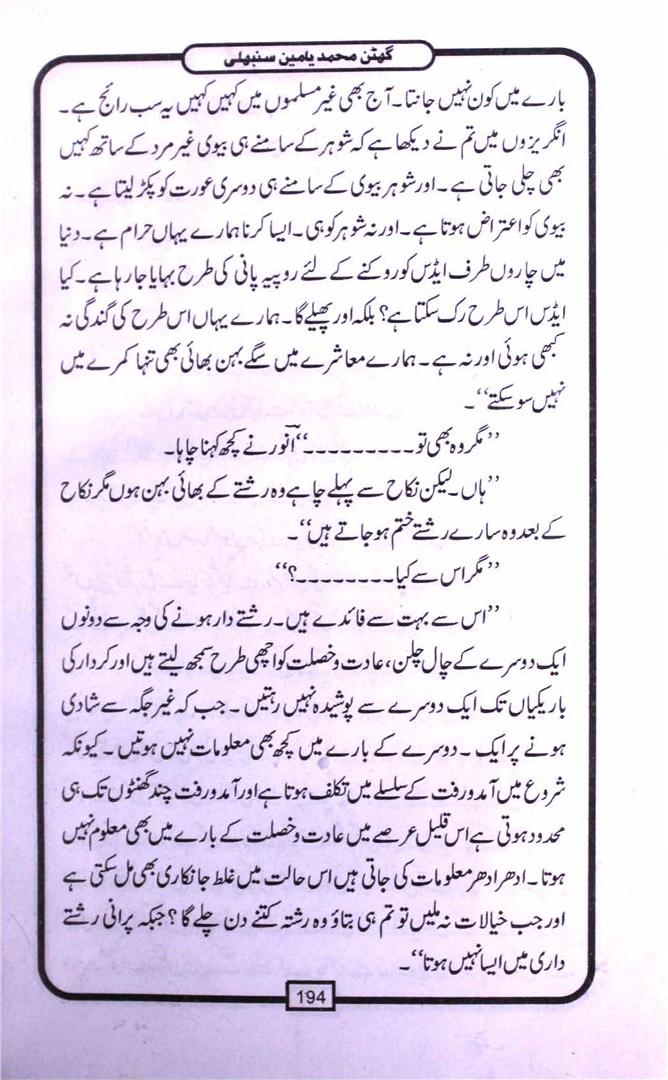 گھٹن محمد یامین سنبھلی
بارے میں کون نہیں جانتا۔ آج بھی غیر مسلموں میں کہیں کہیں یہ سب رائج ہے۔
انگریزوں میں تم نے دیکھا ہے کہ شوہر کے سامنے ہی بیوی غیر مرد کے ساتھ کہیں
بھی چلی جاتی ہے۔ اور شوہر بیوی کے سامنے ہی دوسری عورت کو پکڑ لیتا ہے۔ نہ
بیوی کو اعتراض ہوتا ہے۔ اور نہ شوہر کو ہی۔ ایسا کرنا ہمارے یہاں حرام ہے۔ دنیا
میں چاروں طرف ایڈس کو روکنے کے لئے روپیہ پانی کی طرح بہایا جا رہا ہے۔ کیا
ایڈس اس طرح رک سکتا ہے؟ بلکہ اور پھیلے گا۔ ہمارے یہاں اس طرح کی گندگی نہ
کبھی ہوئی اور نہ ہے۔ ہمارے معاشرے میں سگے بہن بھائی بھی تنہا کمرے میں
نہیں سو سکتے“۔
”مگر وہ بھی تو۔۔۔۔۔۔۔۔۔“ انور نے کچھ کہنا چاہا۔
”ہاں۔ لیکن نکاح سے پہلے چاہے وہ رشتے کے بھائی بہن ہوں مگر نکاح
کے بعد وہ سارے رشتے ختم ہو جاتے ہیں“۔
”مگر اس سے کیا۔۔۔۔۔۔۔۔؟“
”اس سے بہت سے فائدے ہیں۔ رشتے دار ہونے کی وجہ سے دونوں
ایک دوسرے کے چال چلن، عادت و خصلت کو اچھی طرح سمجھ لیتے ہیں اور کردار کی
باریکیاں تک ایک دوسرے سے پوشیدہ نہیں رہتیں۔ جب کہ غیر جگہ سے شادی
ہونے پر ایک۔ دوسرے کے بارے میں کچھ بھی معلومات نہیں ہوتیں۔ کیونکہ
شروع میں آمد و رفت کے سلسلے میں تکلف ہوتا ہے اور آمد و رفت چند گھنٹوں تک ہی
محدود ہوتی ہے اس قلیل عرصے میں عادت و خصلت کے بارے میں بھی معلوم نہیں
ہوتا۔ ادھر ادھر معلومات کی جاتی ہیں اس حالت میں غلط جانکاری بھی مل سکتی ہے
اور جب خیالات نہ ملیں تو تم ہی بتاؤ وہ رشتہ کتنے دن چلے گا؟ جبکہ پرانی رشتے
داری میں ایسا نہیں ہوتا“۔
194